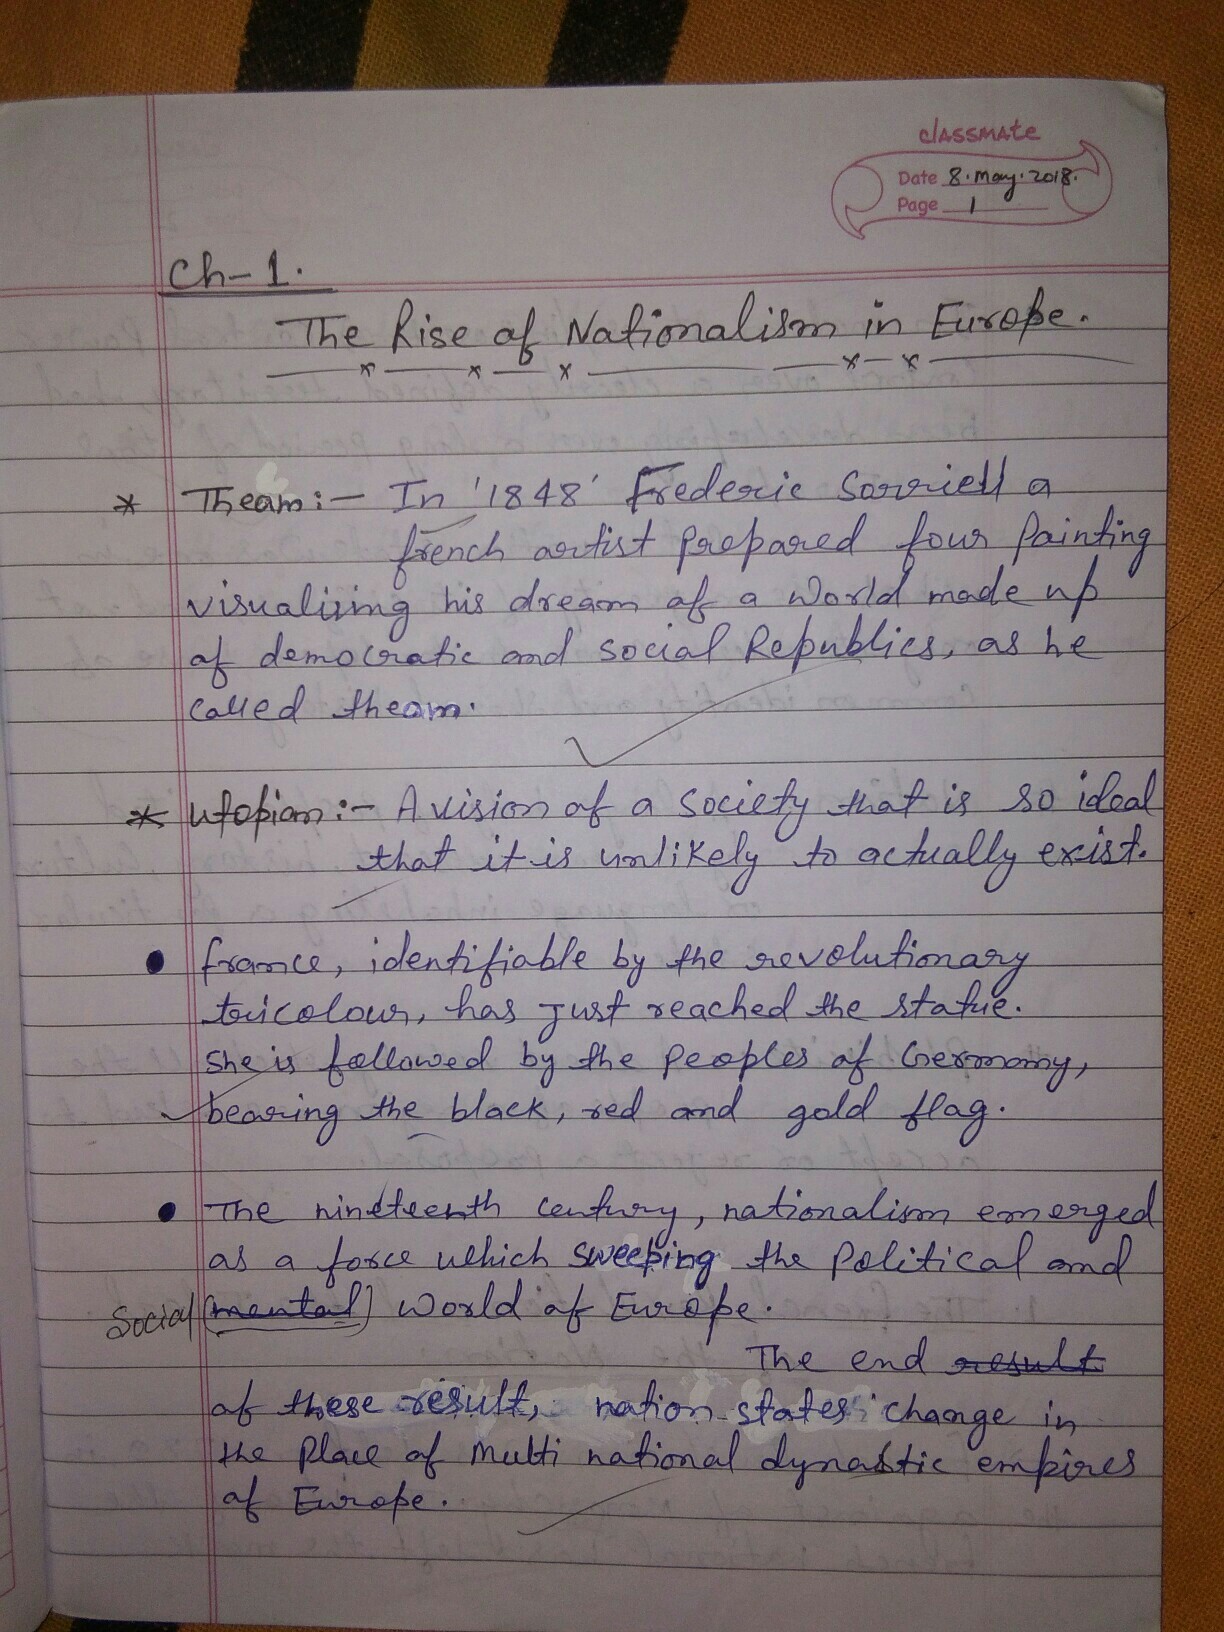 classmate
Date 8.May.2018.
Page 1
Ch-1.
The Rise of Nationalism in Europe.
* Theam:- In '1848' Frederic Sorriell a
french artist prepared four Painting
visualizing his dream of a World made up
of democratic and social Republics, as he
called theam.
* Utopian:- A vision of a society that is so ideal
that it is unlikely to actually exist.
• france, identifiable by the revolutionary
tricolour, has just reached the statue.
She is followed by the peoples of Germany,
bearing the black, red and gold flag.
• The nineteenth century, nationalism emerged
as a force which sweeping the Political and
Social (mental) World of Europe.
The end result
of these result, nation-states change in
the Place of Multi national dynastic empires
of Europe.